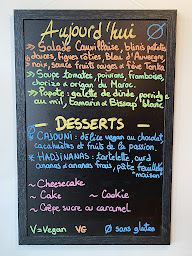 Aujourd'hui Ø
» Salade Camillaise, blinis patates
douces, figues rôties, Bleu d'Auvergne
noix, sauce fruits rouges & fève Tonka
» Soupe tomates, poivrons, framboises,
chorizo & origan du Maroc.
» Popote: galette de dinde, porridge
au mil, tamarin & Bissap blanc
DESSERTS
CAJOUNI: délice vegan au chocolat
cacahuètes et fruits de la passion.
HADJINANAS: tartelette, curd
ananas & ananas frais, pâte feuilletée
"maison"
~ Cheesecake
~ Cake ~ Cookie
~ Crêpe sucre ou caramel
V = Vegan VG Ø sans gluten